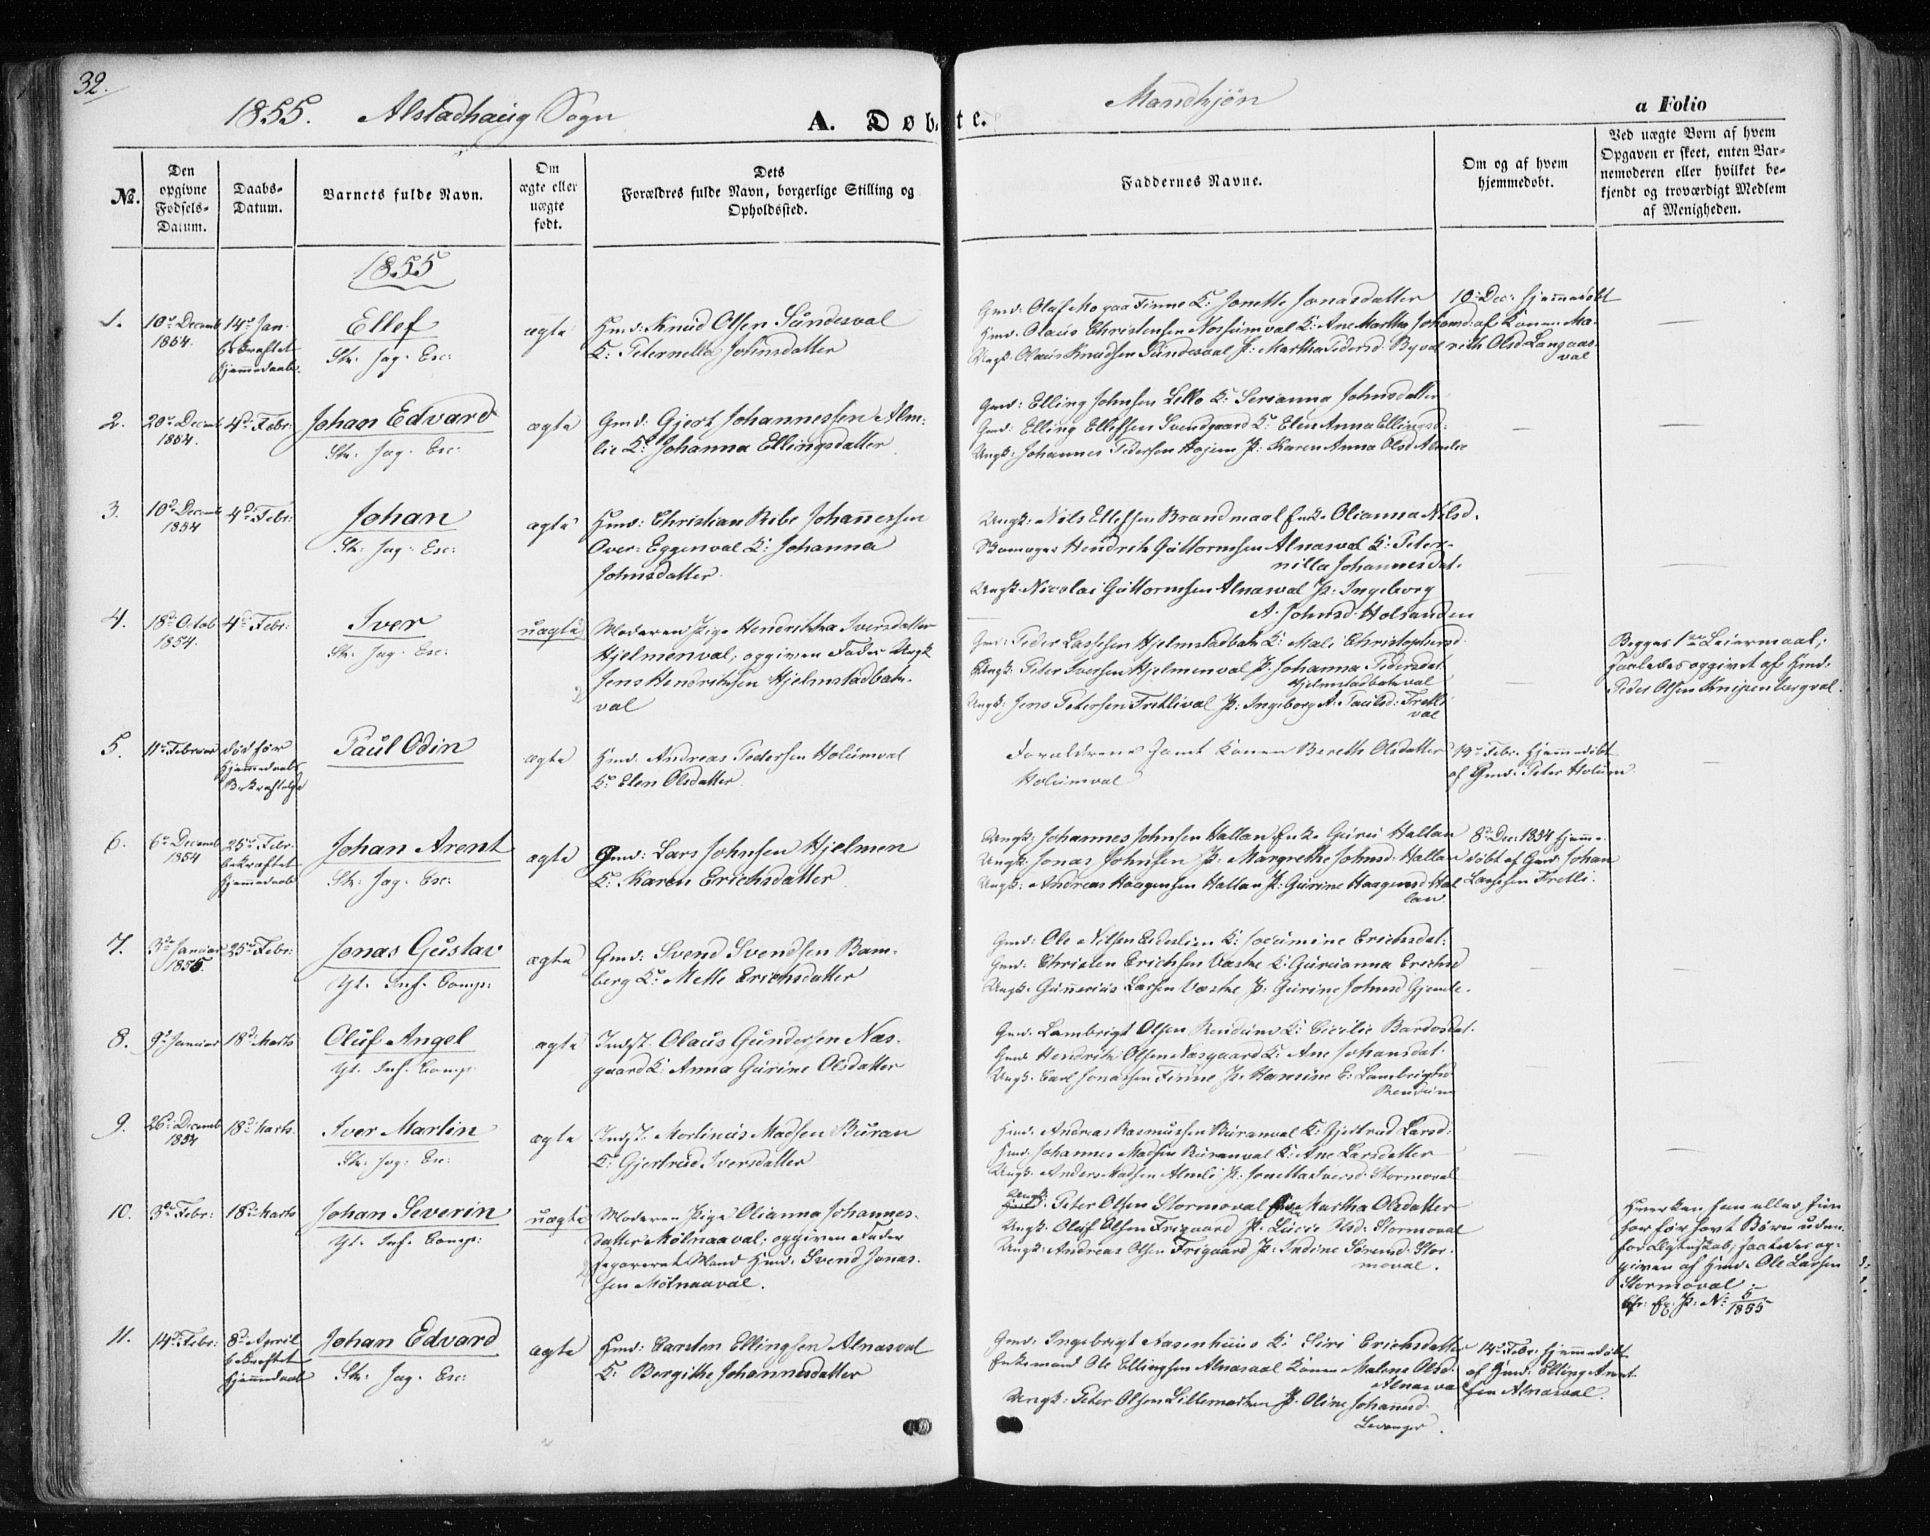 32.
1855. Alstadhaug Sogn
A. Døbte.
Mandkjøn
a Folio
No.
Den opgivne Fødsels-Datum.
Daabs-Datum.
Barnets fulde Navn.
Om ægte eller uægte født.
Dets Forældres fulde Navn, borgerlige Stilling og Opholdssted.
Faddernes Navne.
Om og af hvem hjemmedøbt.
Ved uægte Børn af hvem Opgaven er skeet, enten Barnemoderen eller hvilket bekjendt og troværdigt Medlem af Menigheden.
1855
1. 10de Decemb 1854. 14de Jan. bekræftet Hjemmedaab.
Ellef
Sk. Jag. Esc:
ægte
Hmd: Knud Olsen Sundesval
K. Peternella Johnsdatter
Gmd: Olaf Mo paa Finne K: Jonetta Jonasdatter
Hmd. Olaus Christensen Nossumval K: Ane Martha Johansd:
Ungk: Olaus Knudsen Sundesval P: Martha Pedersd. Byval
10de Dec: hjemmedøbt
af Konen Ma-
rith Olsd Langaas-
val
2. 20de Decemb 1854. 4de Febr:
Johan Edvard
Sk. Jag. Esc:
ægte
Gmd: Gjert Johannessen Alm-
lie K: Johanna Ellingsdatter
Gmd: Elling Johnsen Lello K: Serianna Johnsdatter
Gmd: Elling Ellefsen Svendgaard K: Elen Anna Ellingsd:
Ungk: Johannes Pedersen Hojem P: Karen Anna Olsd Almlie
3. 10de Decemb 1854 4de Febr:
Johan
Sk. Jag. Esc:
ægte
Hmd: Christian Ribe Johannessen
Over: Eggenval K: Johanna
Johnsdatter.
Ungk: Nils Ellefsen Brandmaal Enke Olianna Nilsd.
Skomager Hendrik Guttormsen Alnasval K: Peter-
nilla Johannesdat.
Ungk: Nicolai Guttormsen Alnasval P: Ingeborg
A. Johnsd: Holsanden
4. 18de Octob 1854 4de Febr:
Iver
Sk. Jag. Esc:
uægte
Moderen Pige Hendrikka Iversdatter
Hjelmenval; opgiven Fader Ungk
Jens Hendriksen Hjelmstadbak-
val
Gm: Peder Lassesen Hjelmstadbak K: Mali Christophersd.
Ungk: Peter Iversen Hjelmenval P: Johanna Pedersdat.
Hjelmstadbakval
Ungk: Jens Petersen Tretlival P: Ingeborg A. Paulsd: Tretli
val
Begges 1ste Leiermaal;
saaledes opgivet af Hmd.
Peder Olsen Knipenbergval.
5. 11te Februar død før Hjemmedaabs Bekræftelse
Paul Odin
ægte
Hmd. Andreas Pedersen Holumval
K: Elen Olsdatter.
Forældrene samt Konen Bereth Olsdatter
Holumval
19de Febr. hjemmedøbt
af Gmd. Peter Holum.
6. 6te Decemb 1854 25de Febr. bekræftet Hjemmedaab
Johan Arent
Sk. Jag. Esc:
ægte
Gmd: Lars Johnsen Hjelmen
K: Karen Erichsdatter
Ungk: Johannes Johnsen Hallan Enke Guru Hallan
Ungk: Jonas Johnsen P: Margrethe Johnsd: Hallan
Ungk: Andreas Haagensen Hallan P: Gurine Haagensd Hal
lan.
8de Dec: 1854 hjemme-
døbt af Gmd: Johan
Lassesen Tretli.
7. 3die Januar 1855. 25de Febr:
Jonas Gustav
Yt. Inf. Comp:
ægte
Gmd: Svend Svendsen Bam-
berg K: Mette Erichsdatter
Gmd: Ole Nilsen Eidslien K: Erichsdat:
Gmd: Christen Erichsen Vaske K: Gurianna Erichsd
Ungk: Gunnerius Larsen Vaske P: Gurine Johnsd Gjemle.
8. 9de Januar 18de Marts
Oluf Angel
Yt. Inf. Comp.
ægte
Indst. Olaus Gundersen Næs-
gaard K: Anna Gurine Olsdatter
Gmd. Lambrigt Olsen Rendum K: Cicilie Bardosdat.
Gmd Hendrik Olsen Næsgaard K: Ane Johansdat.
Ungk. Carl Jonassen Finne P: Hansine E: Lambrigtsd
Rendum
9. 26de Decemb 1854 18de Marts.
Iver Martin
Sk: Jag: Esc:
ægte
Indst. Mortinus Madsen Buran
K: Gjertrud Iversdatter
Hmd. Andreas Rasmussen Buranval K: Gjertrud Larsd:
Hmd. Johannes Madsen Buranval K: Ane Larsdatter
Ungk: Anders Madsen Almli P: Jonetta Iversd: Stormoval
10. 3de Febr: 18de Marts
Johan Severin
Yt. Inf. Comp:
uægte
Moderen Pige Olianna Johannes-
datter Mølnaaval; opgiven Fader
separeret Mand Hmd. Svend Jonas-
sen Mølnaaval.
Ungk: Peter Olsen Stormoval Martha Olsdatter
Ungk: Oluf Olsen Frigaard P: Lucie Olsd: Stormoval
Ungk: Andreas Olsen Frigaard P: Indine Sørensd: Stor-
moval.
Hverken han eller hun
har før havt Børn uden-
for Ægteskab; saaledes op-
given af Hmd. Ole Larsen
Stormoval.
Cfr. P: No: 5/1855
11. 14de Febr: 8de April bekræftet Hjemmedaab
Johan Edvard
Sk. Jag. Esc:
ægte
Hmd: Carsten Ellingsen Alnasval
K. Bergithe Johannesdatter
Gmd: Ingebrigt Aasenhuus K: Siri Erichsdatter
Enkemand Ole Ellingsen Alnasval Konen Malene Olsd.
Alnasval
Ungk: Peter Olsen P: Oline Johannesd.
Levanger.
14de Febr: hjemmedøbt
af Gmd: Elling Arent-
sen Alnasval.